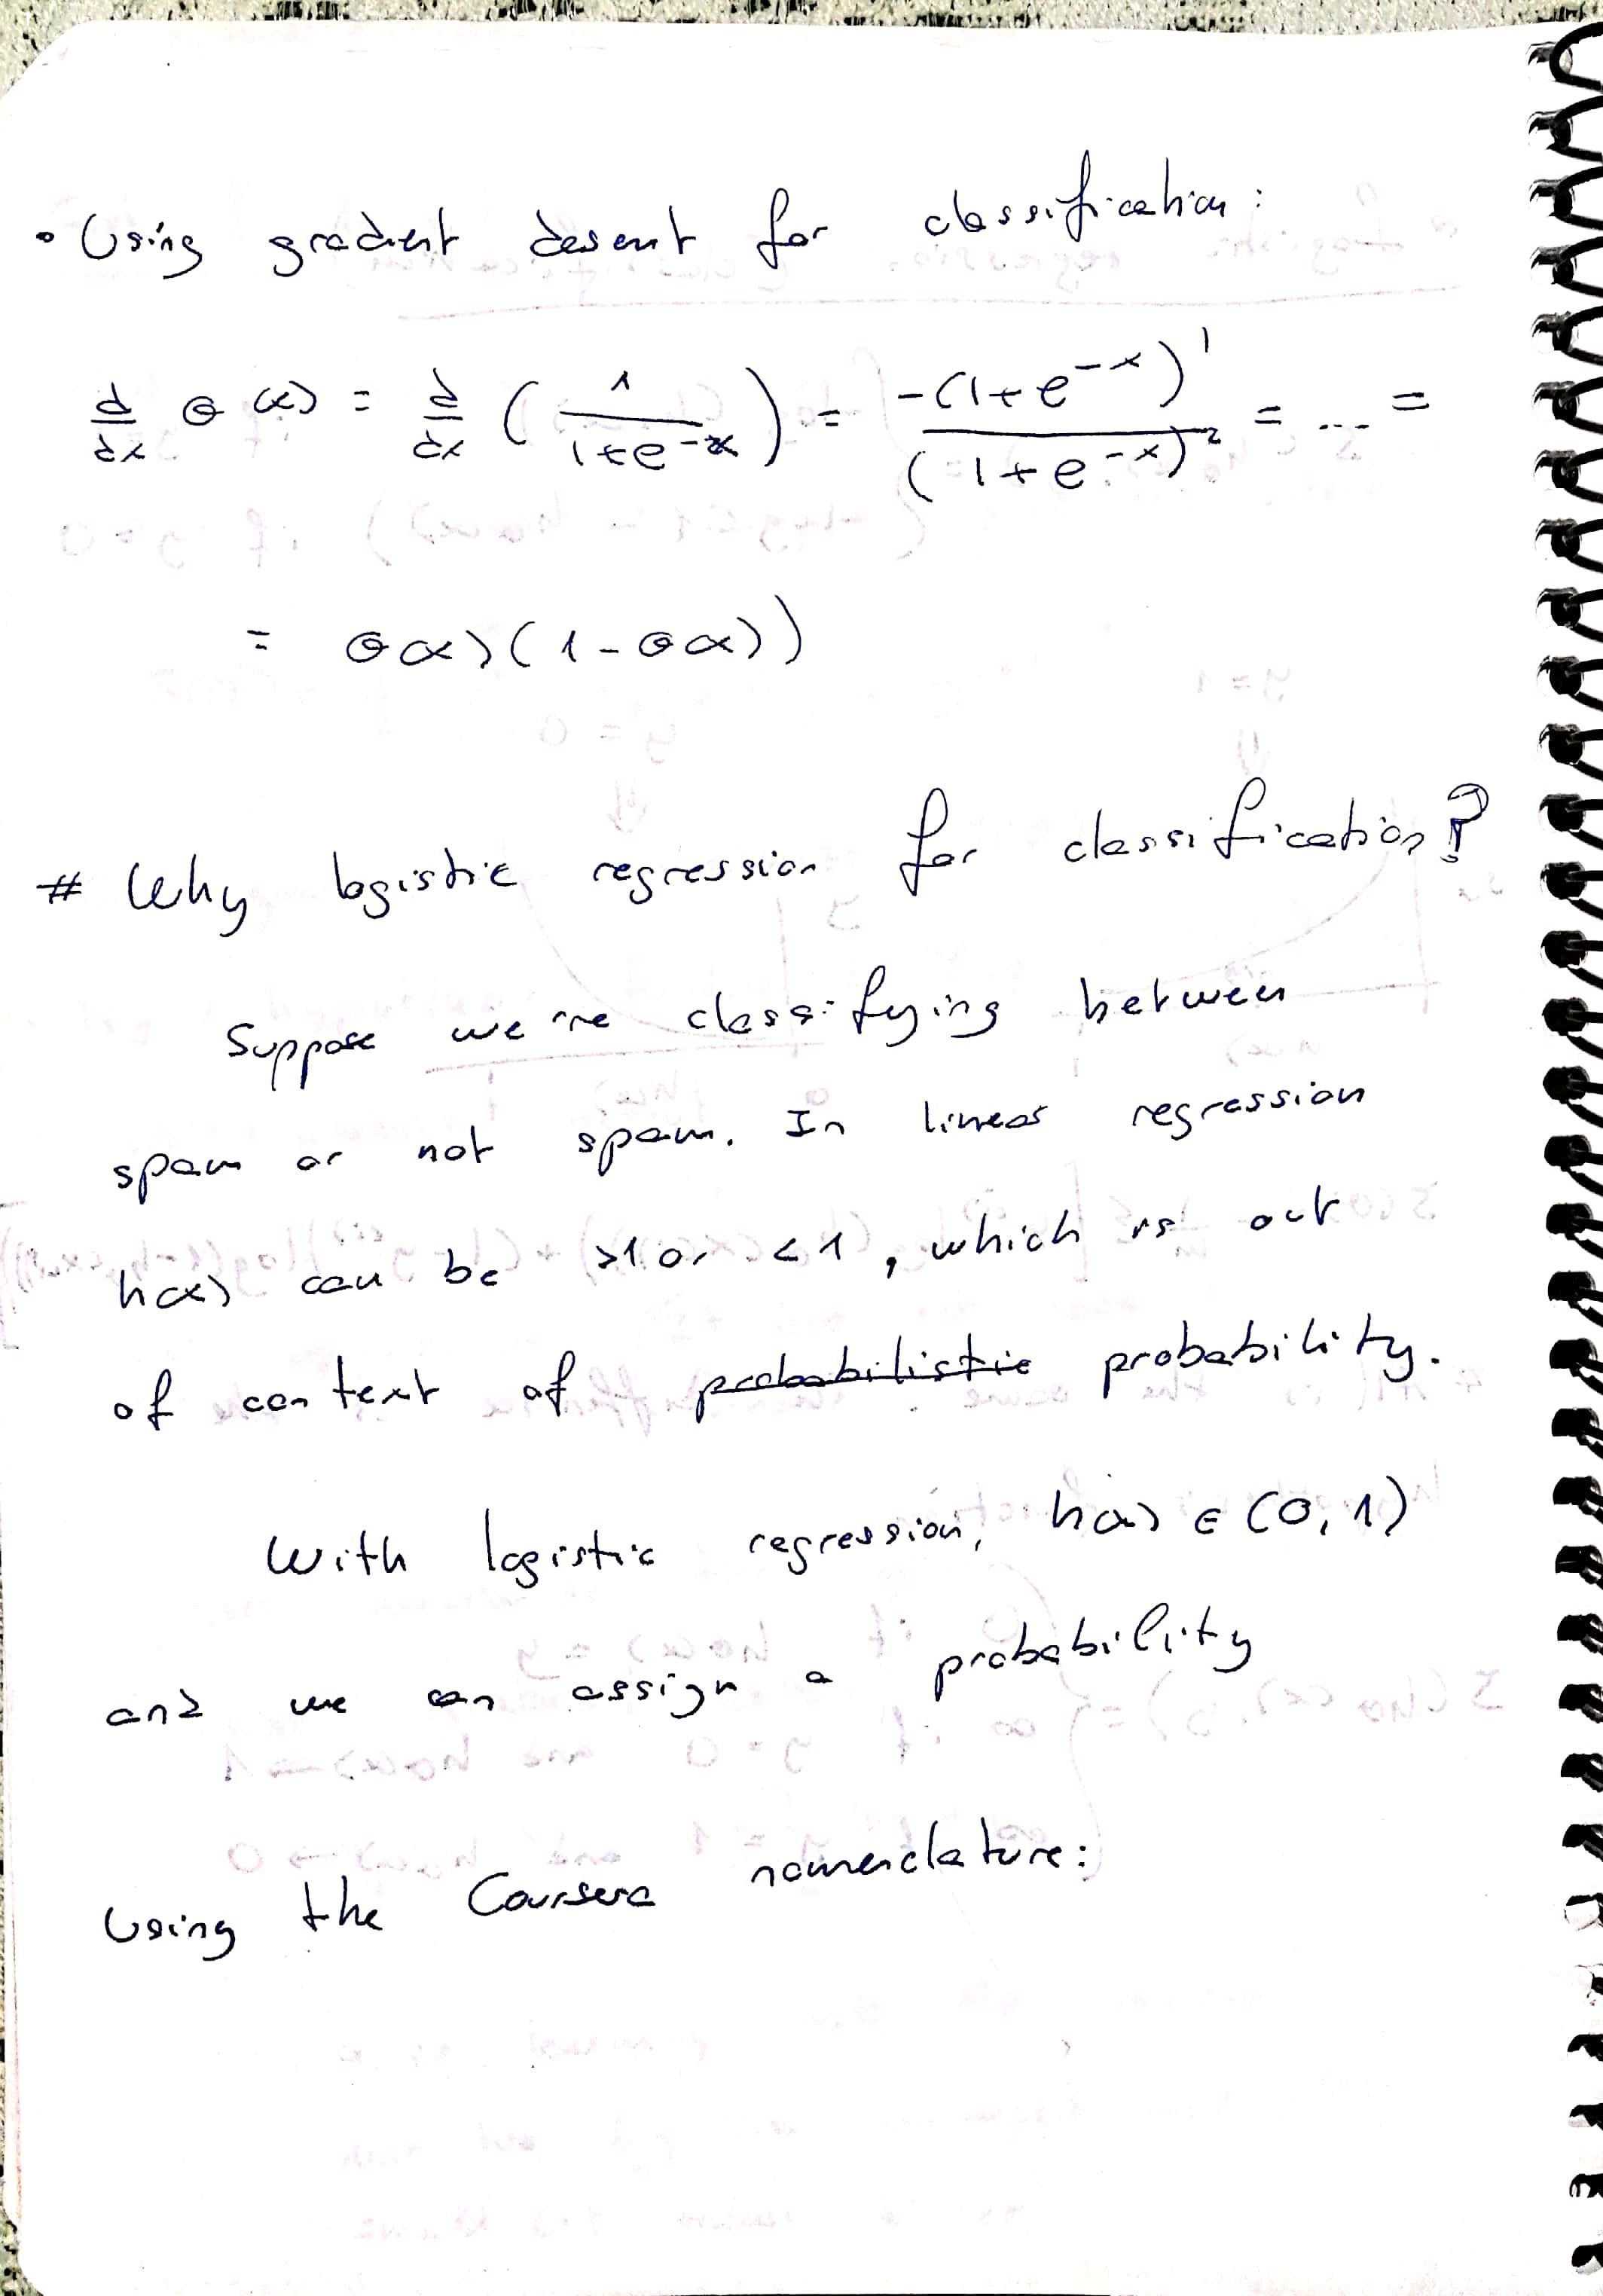 • Using gradient desent for classification:
d/dx θ(x) = d/dx (1/(1+e^-x)) = -(1+e^-x)'/(1+e^-x)^2 = ... =
= θ(x)(1-θ(x))
# Why logistic regression for classification?
Suppose we're classifying between
spam or not spam. In linear regression
h(x) can be >1 or <1, which is out
of context of ~~probabilistic~~ probability.
With logistic regression, h(x) ∈ (0,1)
and we can assign a probability
Using the Coursera nomenclature: